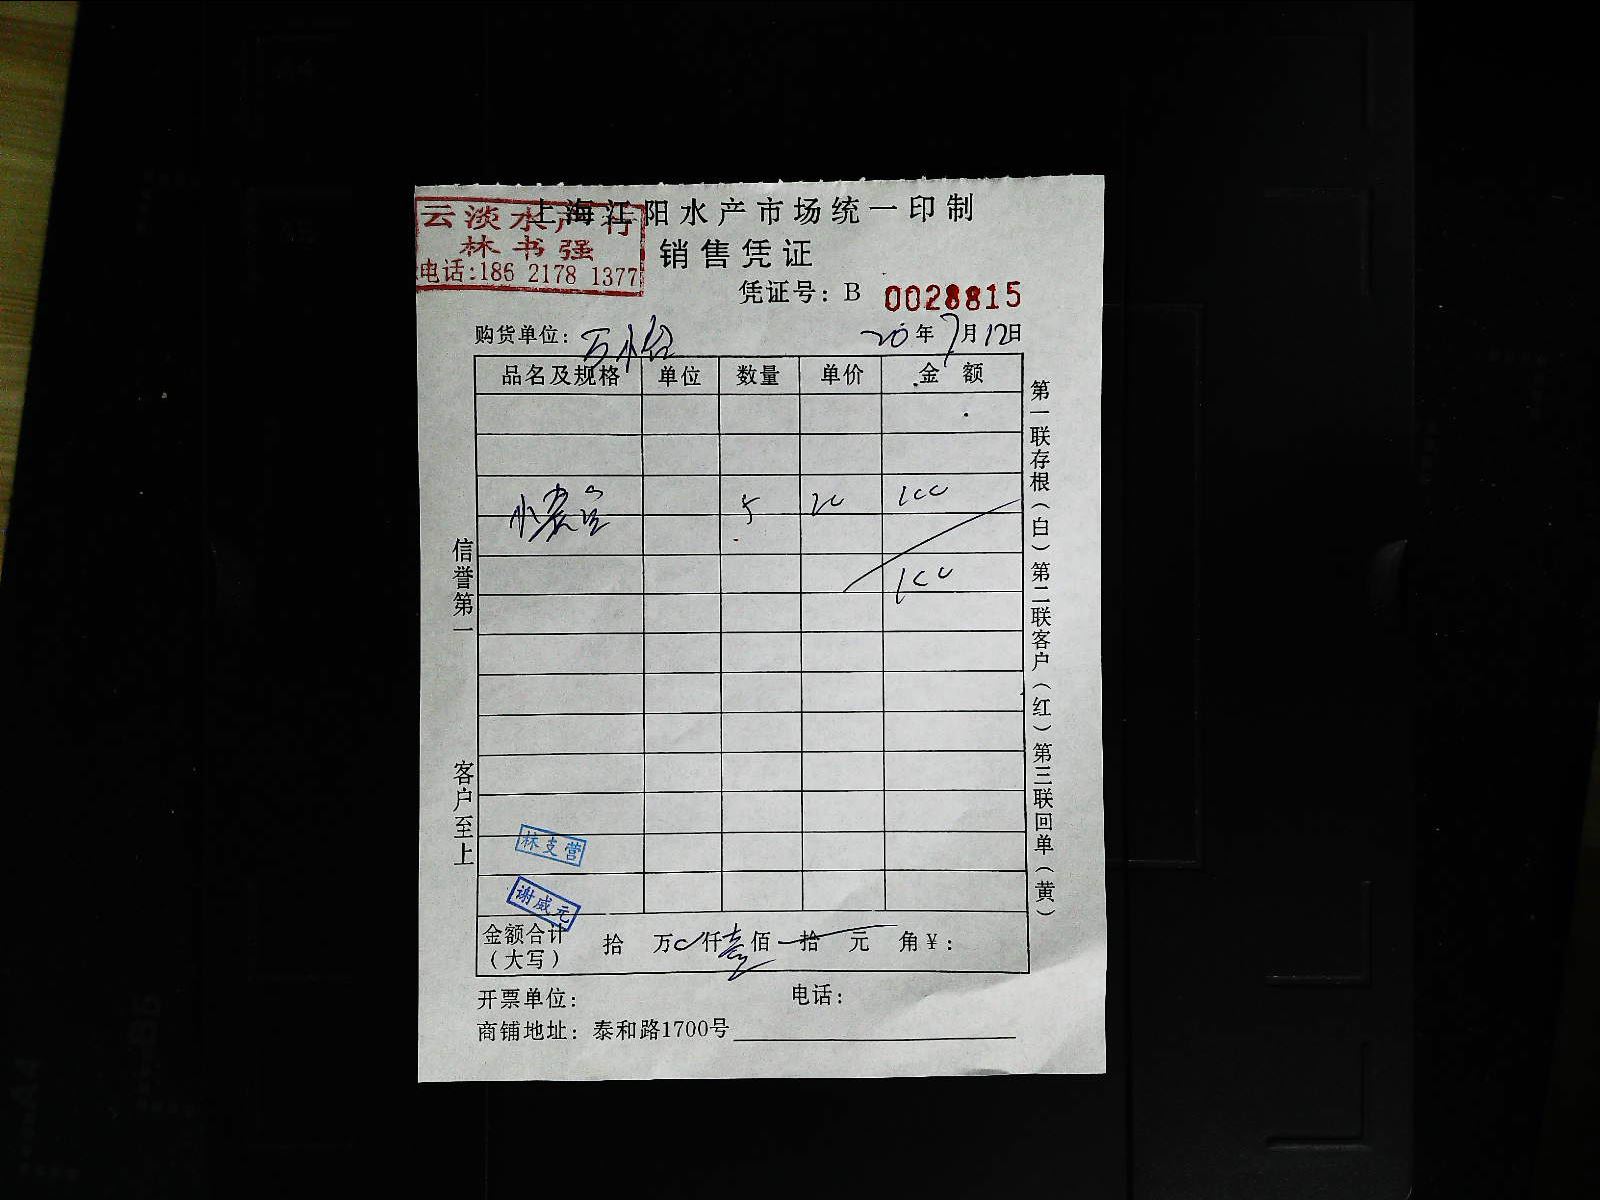 上海江阳水产市场统一印制
云淡水产行
林书强
电话:186 2178 1377
销售凭证
凭证号：B 0028815
购货单位：万小
20年7月12日
品名及规格 单位 数量 单价 金额
小黄 5 20 100
100
信誉第一 客户至上
第一联存根（白）第二联客户（红）第三联回单（黄）
林支营
谢咸元
金额合计（大写） 拾 万 仟 壹 佰 拾 元 角 ¥：
开票单位： 电话：
商铺地址：泰和路1700号